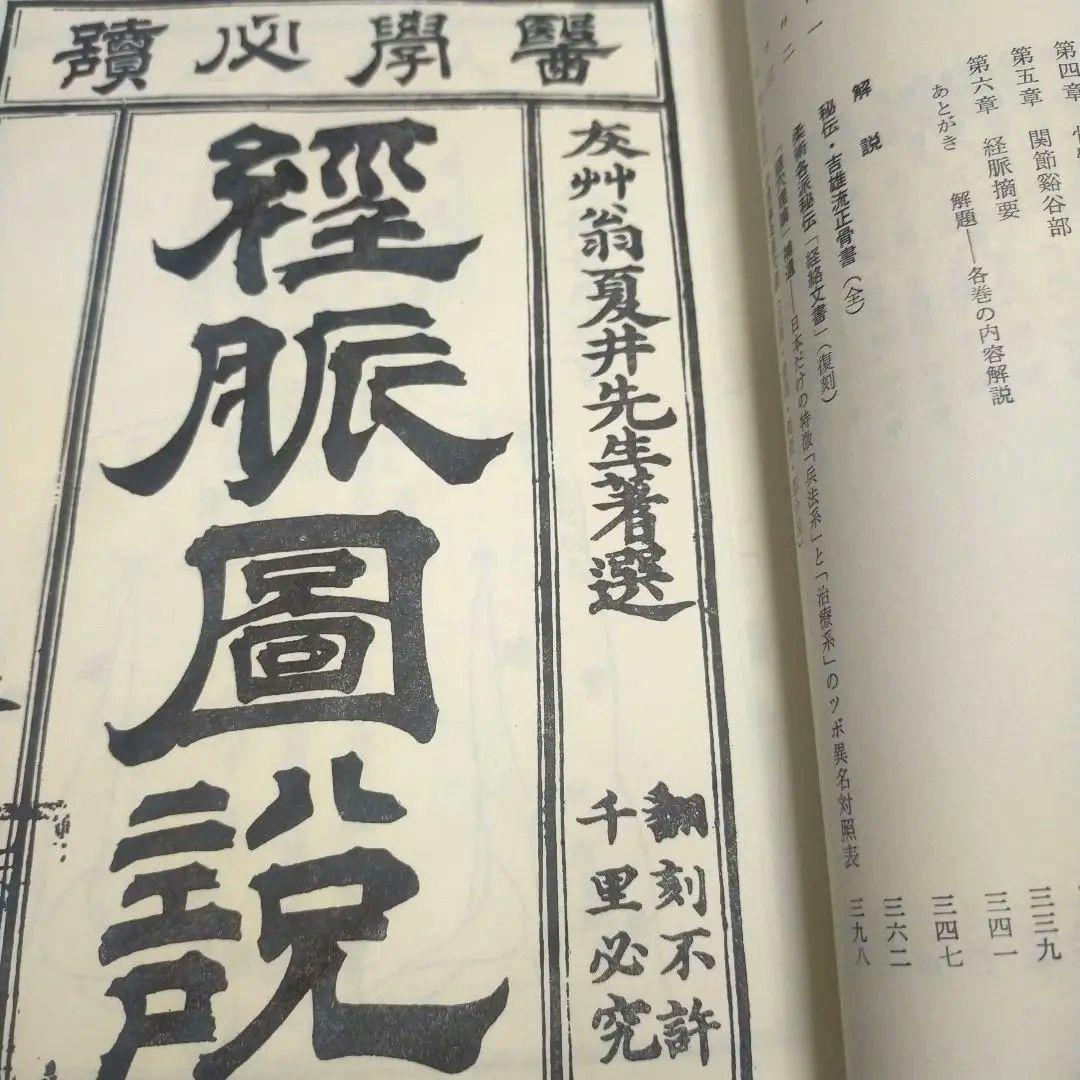 第四章
第五章 関節谿谷部 三三九
第六章 経脈摘要 三四一
あとがき 解題――各巻の内容解説 三四七
解説
秘伝・吉雄流正骨書(全) 三六二
柔術各派秘伝「経絡文書」(復刻) 三九八
補遺――日本だけの特徴「兵法系」と「治療系」のツボ異名対照表
醫學必讀
灰艸翁夏井先生著選
翻刻不許
千里必究
經脈圖説